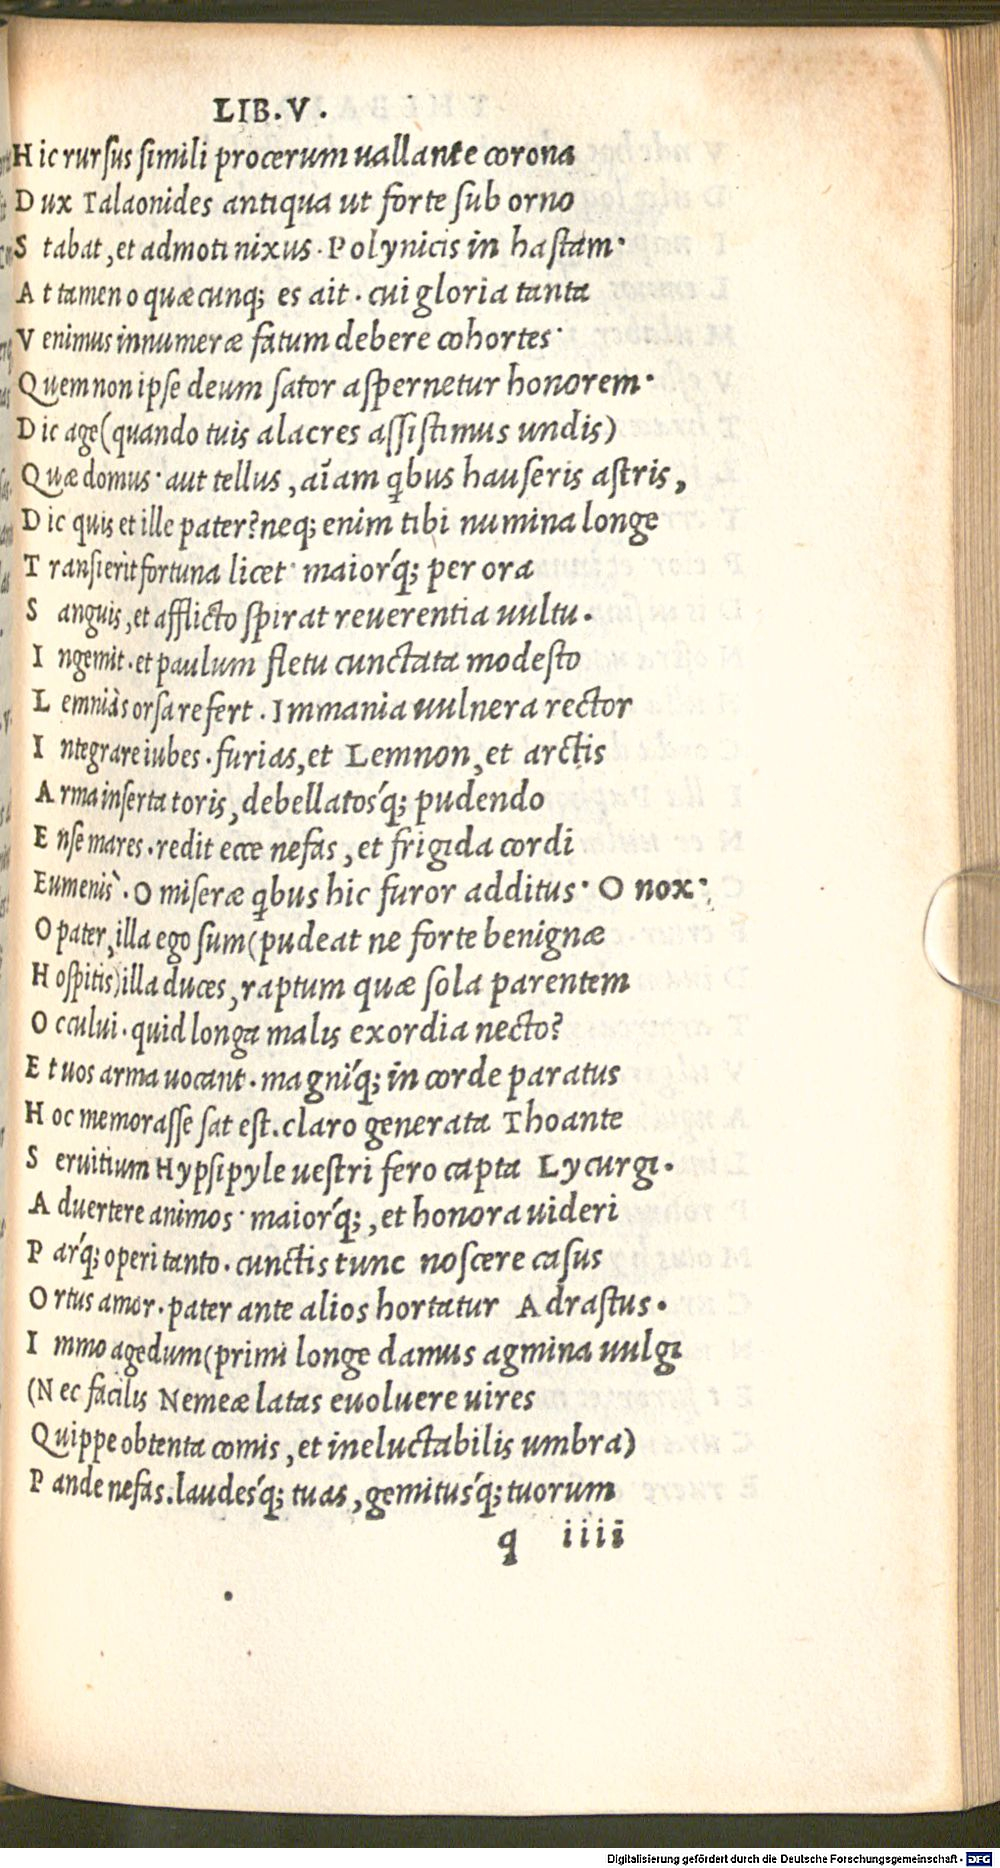 LIB.V.
H ic rursus simili procerum uallante corona
D ux Talaonides antiqua ut forte sub orno
S tabat, et admoti nixus. Polynicis in hastam.
A t tamen o quæcunq; es ait. cui gloria tanta
V enimus innumeræ fatum debere cohortes.
Quem non ipse deum sator aspernetur honorem.
D ic age (quando tuis alacres assistimus undis)
Quæ domus. aut tellus, aīam q̄bus hauseris astris,
D ic quis et ille pater? neq; enim tibi numina longe
T ransierit fortuna licet. maior'q; per ora
S anguis, et afflicto spirat reuerentia uultu.
I ngemit. et paulum fletu cunctata modesto
L emniàs orsa refert. Immania uulnera rector
I ntegrare iubes. furias, et Lemnon, et arctis
A rma inserta toris, debellatos'q; pudendo
E nse mares. redit ecce nefas, et frigida cordi
Eumenis`. O miseræ q̄bus hic furor additus. O nox.
O pater, illa ego sum (pudeat ne forte benignæ
H ospitis) illa duces, raptum quæ sola parentem
O ccului. quid longa malis exordia necto?
E t uos arma uocant. magni'q; in corde paratus
H oc memorasse sat est. claro generata Thoante
S eruitium Hypsipyle uestri fero capta Lycurgi.
A duertere animos. maior'q;, et honora uideri
P ar'q; operi tanto. cunctis tunc noscere casus
O rtus amor. pater ante alios hortatur Adrastus.
I mmo agedum (primi longe damus agmina uulgi
(N ec facilis Nemeæ latas euoluere uires
Quippe obtenta comis, et ineluctabilis umbra)
P ande nefas. laudes'q; tuas, gemitus'q; tuorum
q iiii
Digitalisierung gefördert durch die Deutsche Forschungsgemeinschaft - DFG